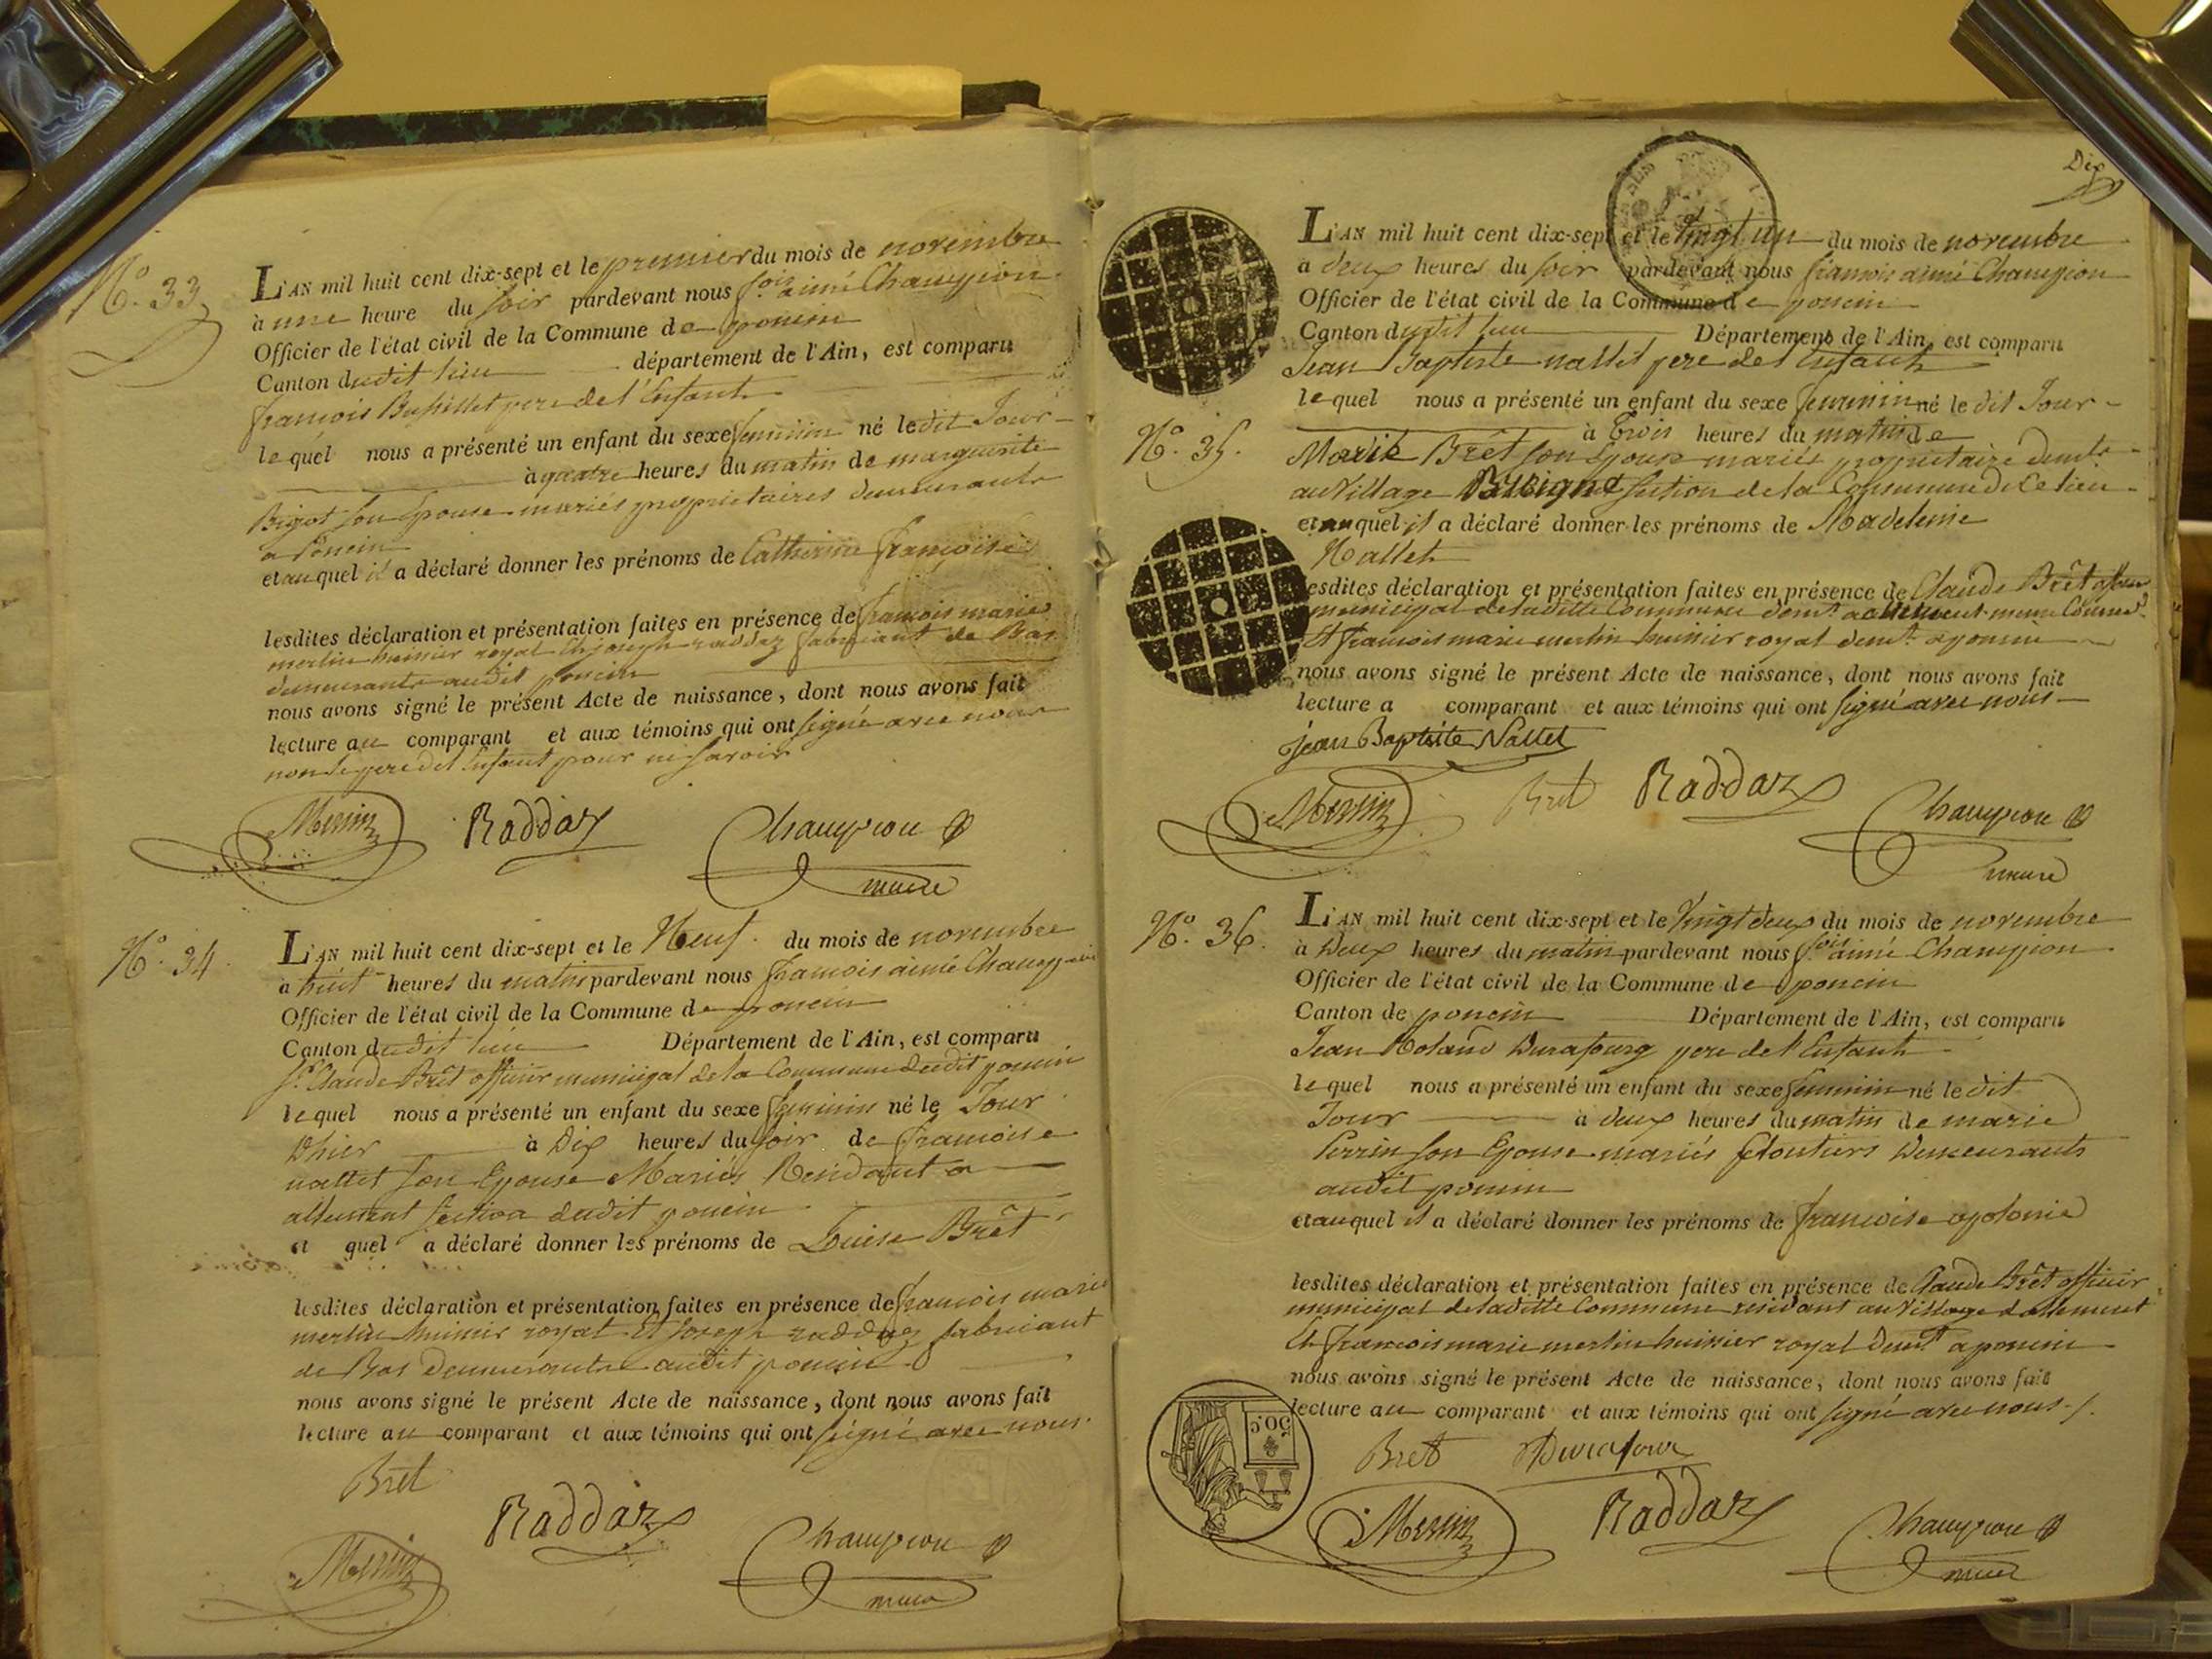 N.o 33
L'AN mil huit cent dix-sept et le premier du mois de novembre
à une heure du soir pardevant nous f.ois aimé Champion
Officier de l'état civil de la Commune de poncin
Canton dudit lieu département de l'Ain, est comparu
françois Bussillet pere de l'Enfant
lequel nous a présenté un enfant du sexe feminin né ledit Jour
à quatre heures du matin de marguerite
Bigot son Epouse mariés proprietaires demeurants
a Poncin
et auquel il a déclaré donner les prénoms de Catherine françoise
lesdites déclaration et présentation faites en présence de françois marie
merlin huissier royal Et joseph raddaz fabricant de Bas
demeurants audit poncin
nous avons signé le présent Acte de naissance, dont nous avons fait
lecture au comparant et aux témoins qui ont signé avec nous
non le pere de l'Enfant pour ne savoir
Merlin Raddaz Champion
maire
N.o 34
L'AN mil huit cent dix-sept et le Neuf du mois de novembre
à huit heures du matin pardevant nous francois aimé Champion
Officier de l'état civil de la Commune de poncin
Canton dudit lieu Département de l'Ain, est comparu
S.r Claude Brêt officier municipal de la Commune dudit poncin
lequel nous a présenté un enfant du sexe feminin né le Jour
D'hier à Dix heures du soir de francoise
nallet son Epouse Mariés Residant a
allement section dudit poncin
et quel a déclaré donner les prénoms de Louise Brêt
lesdites déclaration et présentation faites en présence de francois marie
merlin huissier royal Et Joseph raddaz fabricant
de Bas demeurants audit poncin
nous avons signé le présent Acte de naissance, dont nous avons fait
lecture au comparant et aux témoins qui ont signé avec nous
Brêt
Raddaz
Merlin Champion
maire
Dix
N.o 35.
L'AN mil huit cent dix-sept et le Vingt un du mois de novembre
à deux heures du soir pardevant nous francois aimé Champion
Officier de l'état civil de la Commune de poncin
Canton dudit lieu Département de l'Ain, est comparu
Jean Baptiste nallet pere de l'Enfant
lequel nous a présenté un enfant du sexe feminin né ledit Jour
à Trois heures du matin de
Marie Brêt son Epouse mariés proprietaire demts
au Village section de la Commune de Ce lieu
et auquel il a déclaré donner les prénoms de Madeleine
Nallet
lesdites déclaration et présentation faites en présence de Claude Brêt officier
municipal de laditte Commune demt a allement meme Commune
Et francois marie merlin huissier royal demt a poncin
nous avons signé le présent Acte de naissance, dont nous avons fait
lecture a comparant et aux témoins qui ont signé avec nous
jean Baptiste Nallet
Merlin Bret Raddaz Champion
maire
N.o 36.
L'AN mil huit cent dix-sept et le Vingt deux du mois de novembre
à Deux heures du matin pardevant nous f.ois aimé Champion
Officier de l'état civil de la Commune de poncin
Canton de poncin Département de l'Ain, est comparu
Jean Roland Durafourg pere de l'Enfant
lequel nous a présenté un enfant du sexe feminin né ledit
Jour à deux heures du matin de marie
Perrin son Epouse mariés Demeurants
audit poncin
et auquel il a déclaré donner les prénoms de francoise apolonie
lesdites déclaration et présentation faites en présence de Claude Brêt officier
municipal de laditte Commune residant au Village d allement
Et francois marie merlin huissier royal demt a poncin
nous avons signé le présent Acte de naissance, dont nous avons fait
lecture au comparant et aux témoins qui ont signé avec nous
50C
Bret Durafour
Merlin Raddaz Champion
maire